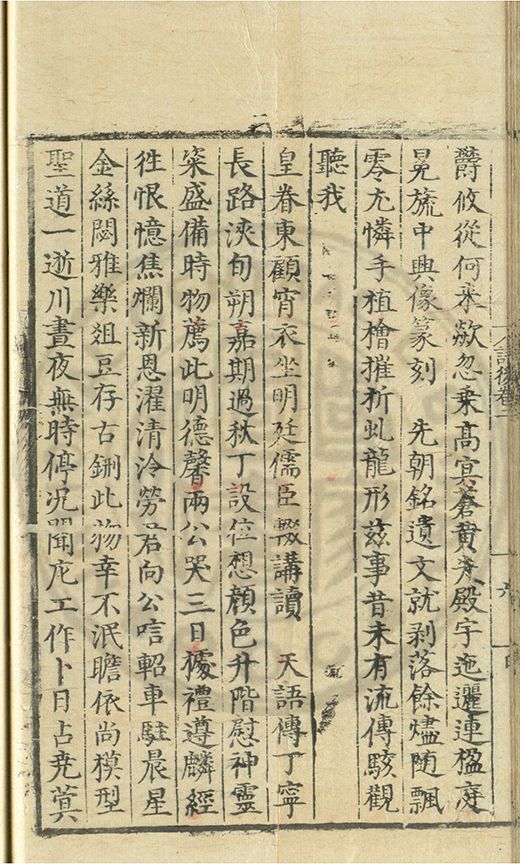 欝攸從何來欻忽乘高冥蒼黄夾殿宇迤邐連楹
冕旒中興像篆刻 先朝銘遺文就剥落餘燼随飄
零尤憐手植檜摧折虬龍形兹事昔未有流傳駭觀
聽我
皇眷東顧宵衣坐明廷儒臣輟講讀 天語傳丁寧
長路浹旬朔嘉期過秋丁設位想顔色升階慰神靈
粢盛備時物薦此明德馨兩公哭三日據禮遵麟經
徃恨憶焦爛新恩濯清泠勞君向公唁軺車駐晨星
金絲閟雅樂爼豆存古鉶此物幸不泯瞻依尚模型
聖道一逝川晝夜無時停况聞庀工作卜日占堯蓂